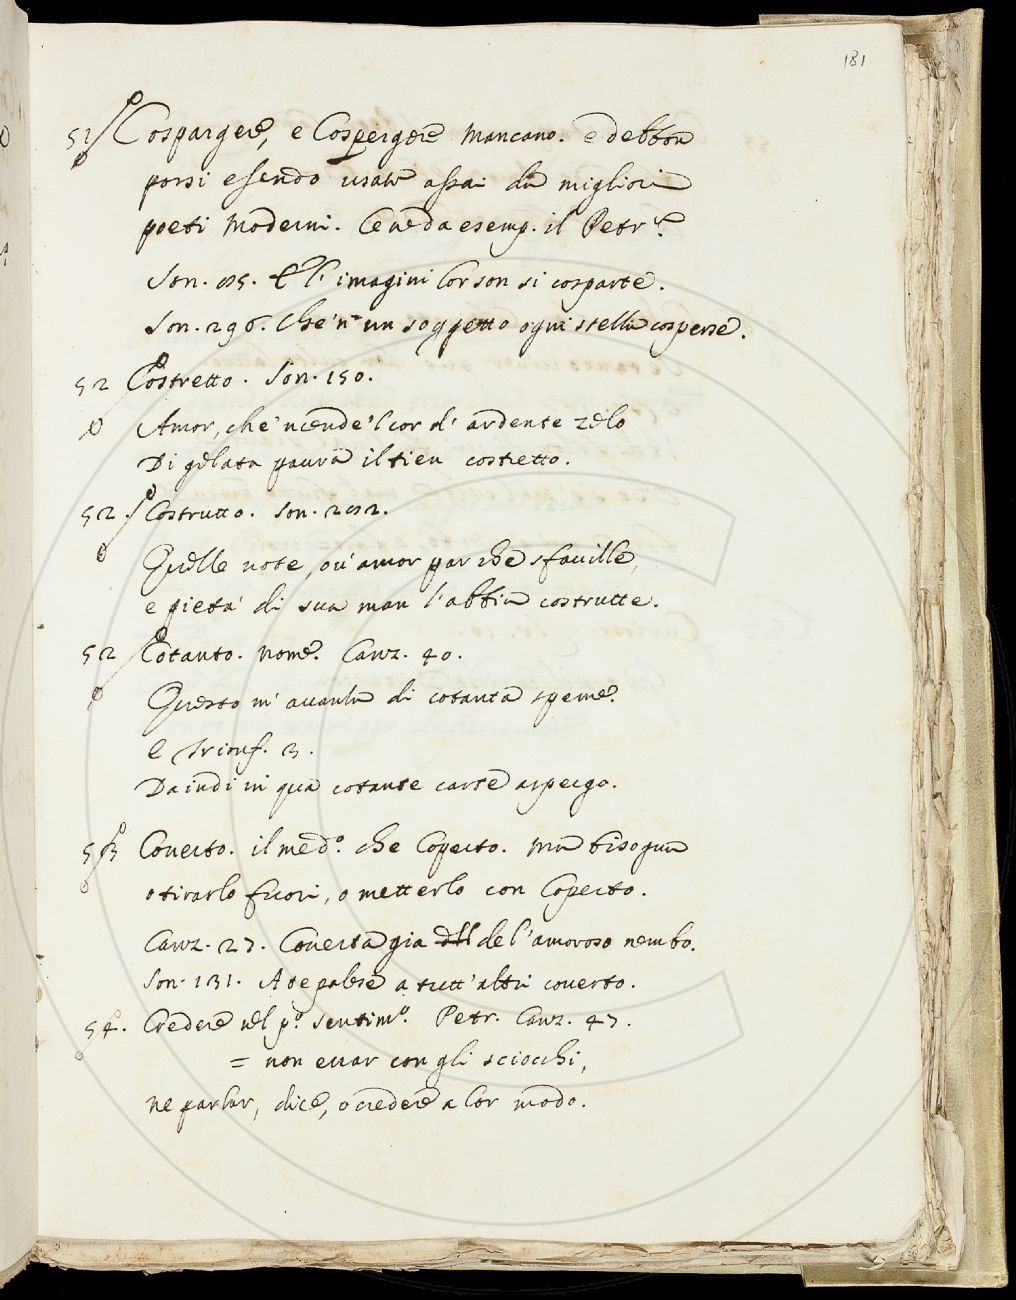 181
51 Cospargere, e Cospergere mancano. e debbon
porsi essendo usate assai da migliori
poeti moderni. Ce ne da esemp. il Petr.ca
Son. E l' imagini lor son si cosparte.
Son. 296. Che 'n un soggetto ogni stella cosperse.
52 Costretto. Son. 150.
Amor, che 'ncende 'l cor d' ardente zelo
Di gelata paura il tien costretto.
52. Costrutto. Son. 202.
Quelle note, ou' amor par che sfauille,
e pieta' di sua man l' abbia costrutte.
52 Cotanto. nome. Canz. 40.
Questo m' auanza di cotanta speme.
E Trionf. 3.
Da indi in qua cotante carte aspergo.
53 Couerto. il med.o che Coperto. ma bisogna
o tirarlo fuori, o metterlo con Coperto.
Canz. 27. Couerta gia de l' amoroso nembo.
Son. 131. A te palese a tutt' altri couerto.
54. Credere nel p.o sentim.o. Petr. Canz. 47.
= non errar con gli sciocchi,
ne parlar, dice, o credere a lor modo.